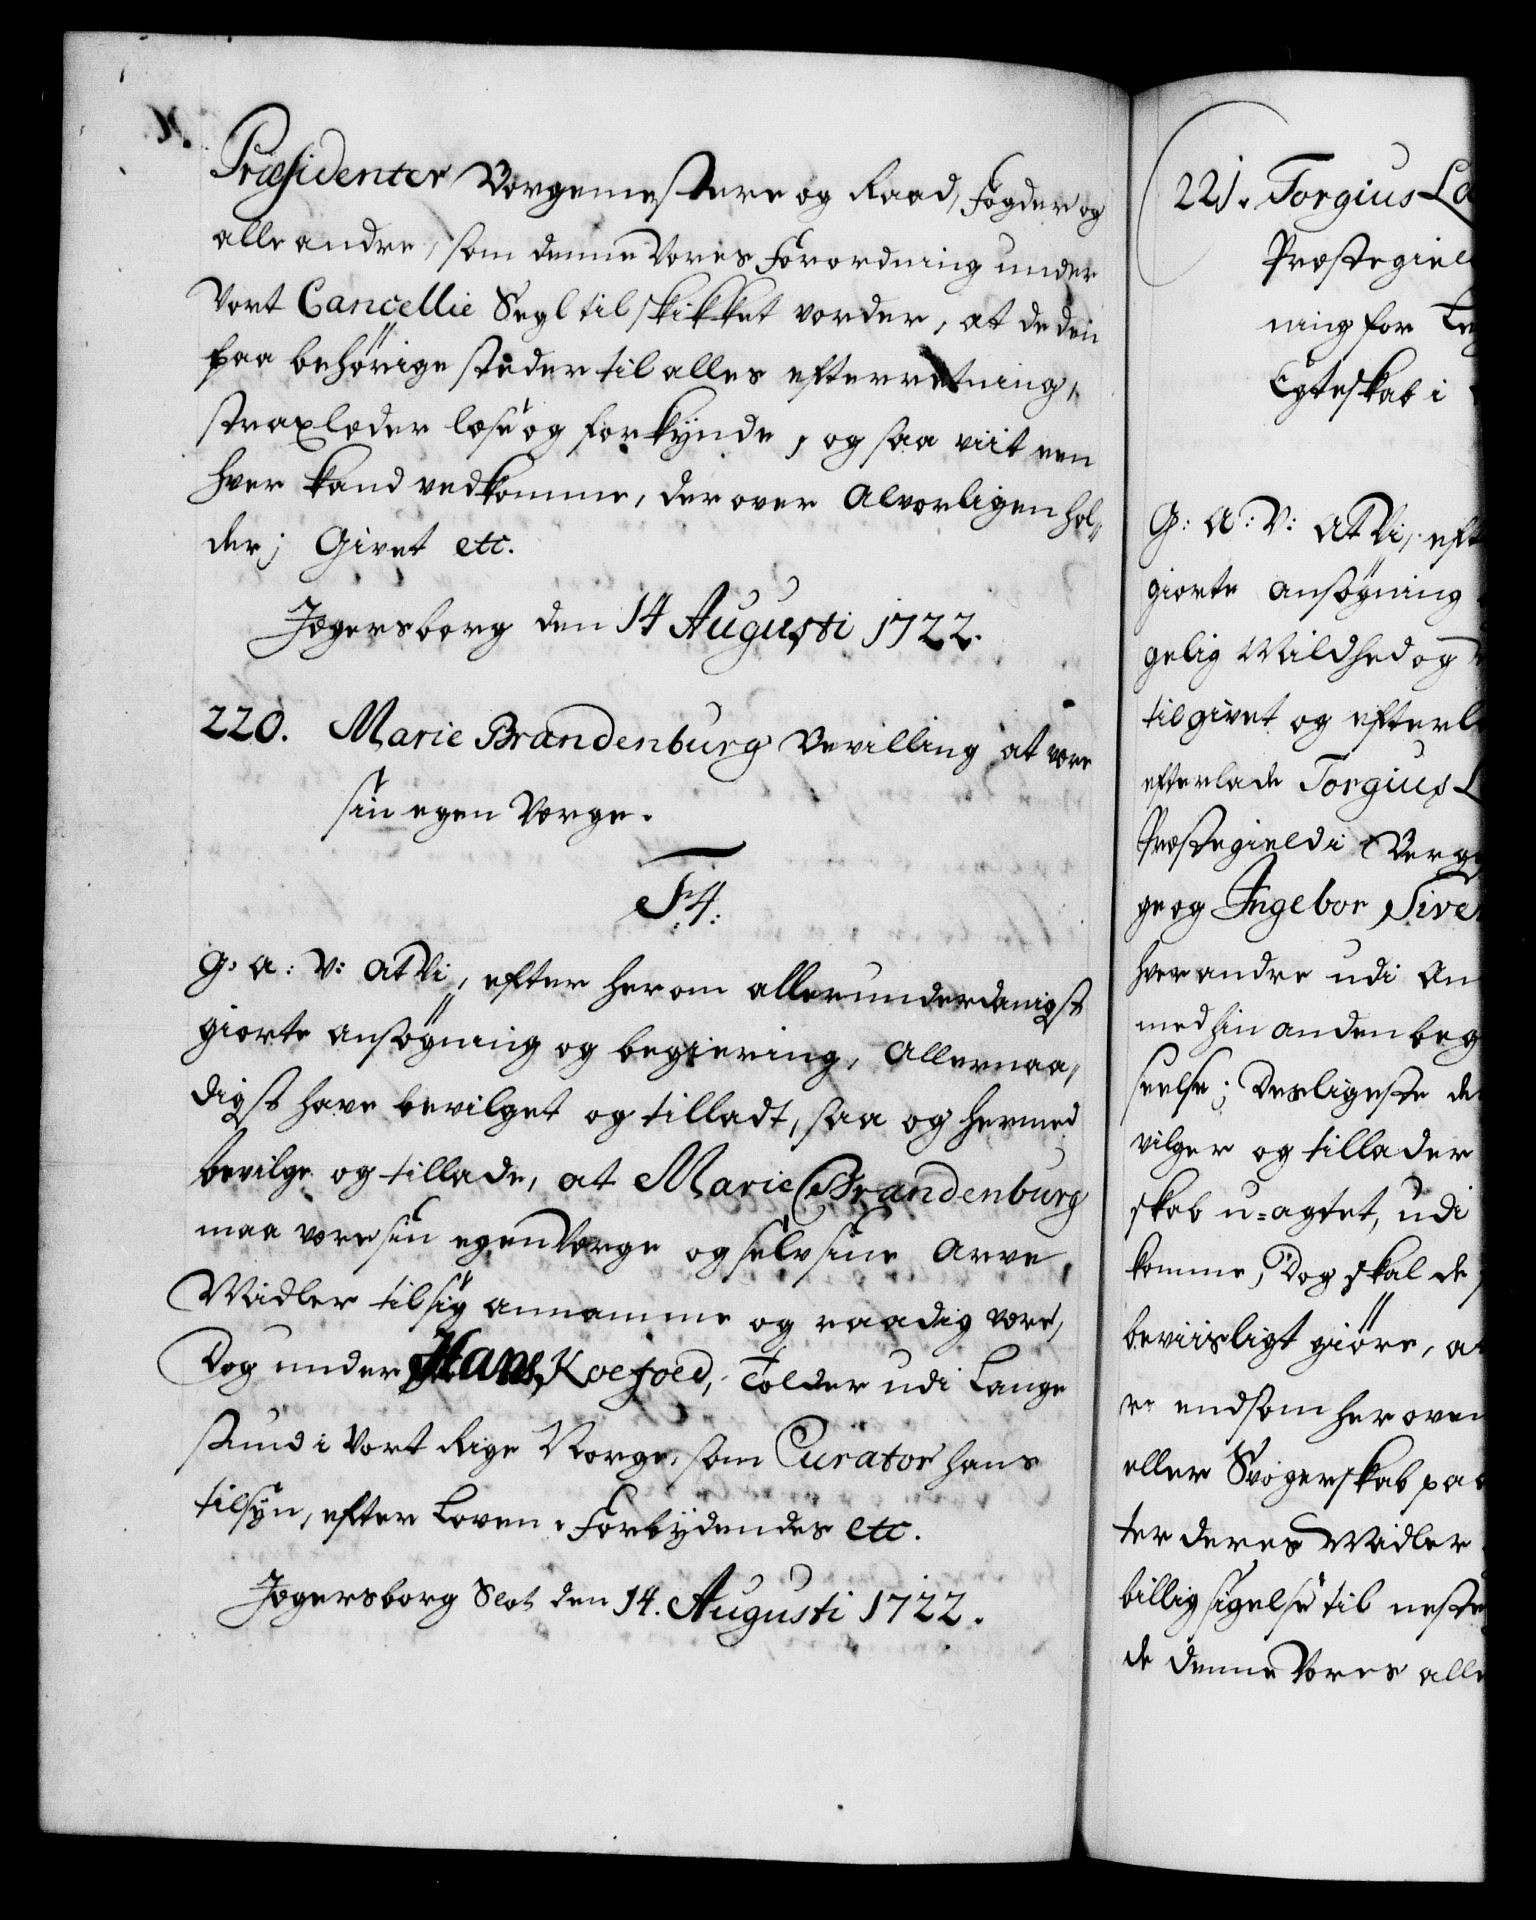 Præsidenter Borgemestere og Raad, Fogder og
alle andre, som denne Vores Forordning under
Vort Cancellie Segl tilskikket vorder, at de den
paa behörige stæder til alles efterretning,
strax lader læse og forkÿnde, og saa viit een
hver kand vedkomme, der over Alvorligen hol„
der; Givet etc.
Jægersborg den 14 Augusti 1722.
220. Marie Brandenburg Bevilling at være
sin egen Værge.
F4.
G: A: V: At Vi, efter her om allerunderdanigst
giorte ansögning og begiering, Allernaa„
digst have bevilget og tilladt, saa og hermed
bevilge og tillade, at Marie Brandenburg
maa være sin egen Værge og selv sine Arve
Midler til sig annamme og raadig være,
Dog under Hans Koefoed, Tolder udi Lange
sund i Vort Rige Norge, som Curator hans
tilsÿn, efter Loven. Forbÿdendes etc.
Jægersborg Slot den 14. Augusti 1722.
221. Torgius
Præstegield
ning for
Egteskab i
G: A: V: At Vi, eft
giorte ansögning
gelig Mildhed og
tilgivet og efterl
efterlade Torgius L
Præstegield i Berg
ge og Ingebor Sive
hver andre udi An
med hin anden beg
seelse; Desligeste de
vilger og tillader
skab u-agtet, udi
komme, Dog skal de
beviisligt giöre, at
re end som her oven
eller Svogerskab paa
ter deres Midler
billig sigelse til neste
de denne Vores alle